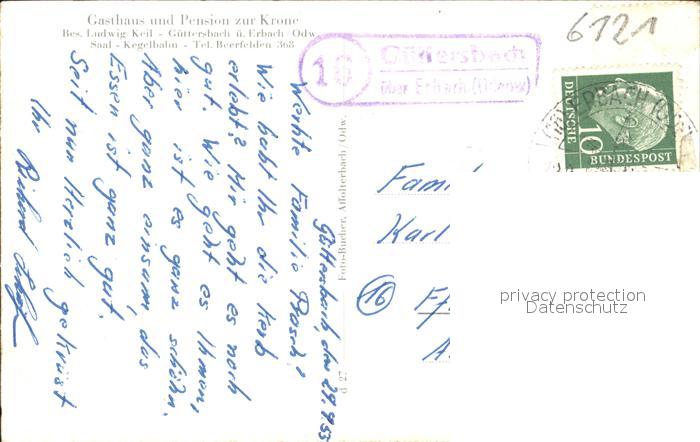 Gasthaus und Pension zur Krone
Bes. Ludwig Keil - Güttersbach ü. Erbach/Odw.
Saal - Kegelbahn - Tel. Beerfelden 368
6121
16 Güttersbach
über Erbach (Odenw)
DEUTSCHE
10
BUNDESPOST
ERBACH (ODENW)
Güttersbach, den 29.9.55
Werte Familie
Wie habt Ihr die Kerb
erlebt? Mir geht es noch
gut. Wie geht es Ihnen,
hier ist es ganz schön.
Aber ganz einsam, das
Essen ist ganz gut.
Seit nun Herzlich gekrüst
Ihr Richard
Foto-Bucher, Affolterbach/Odw.
d 27
Fami
Karl
16 Ff
A
privacy protection
Datenschutz